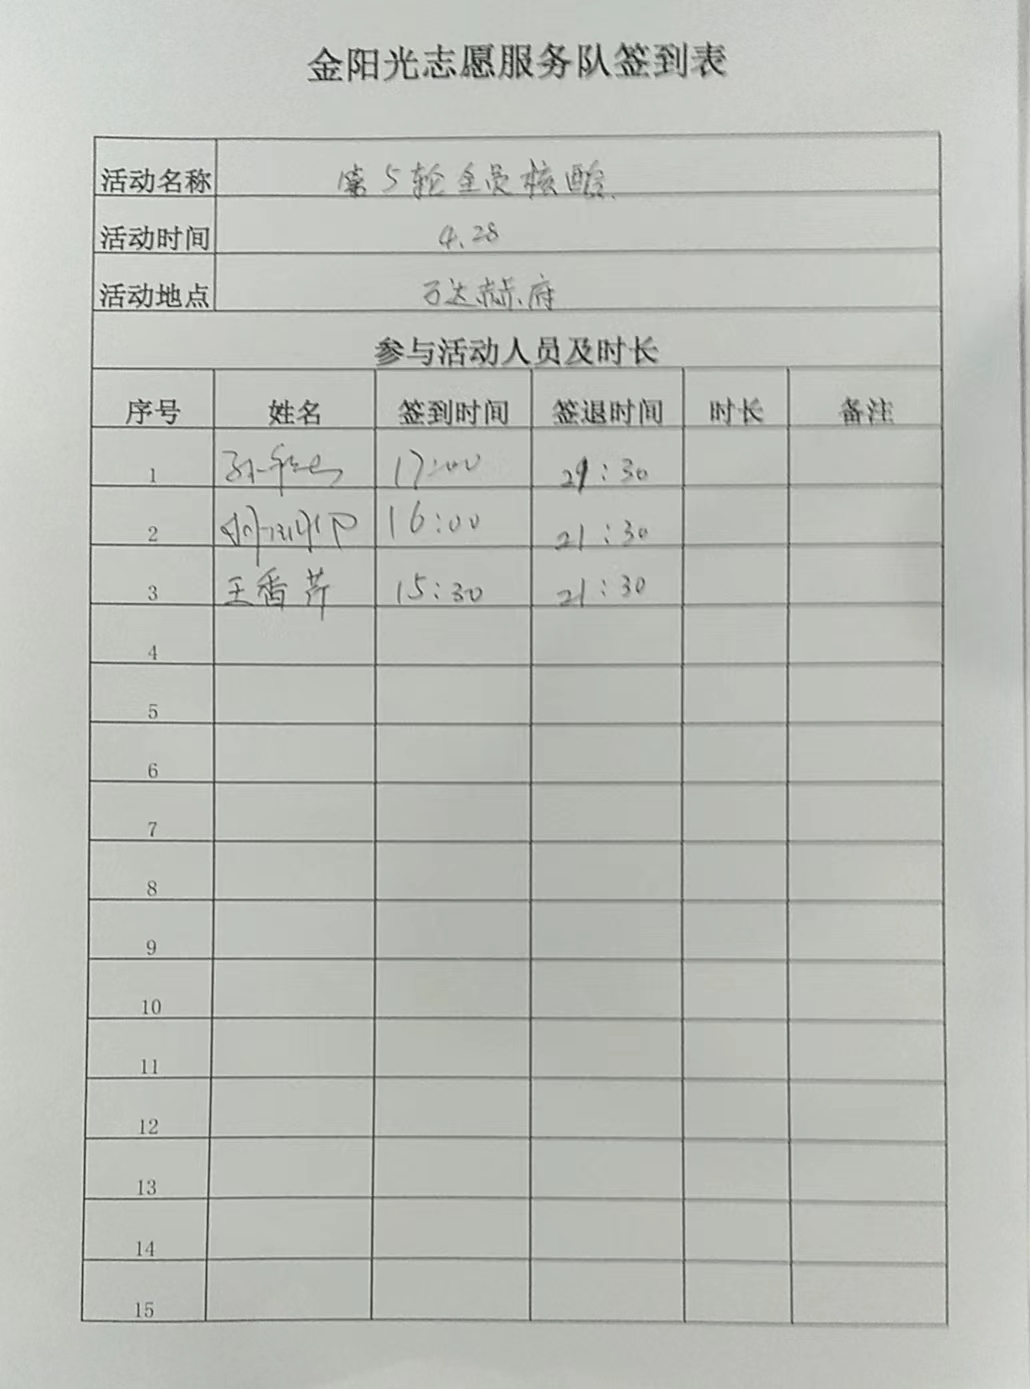 金阳光志愿服务队签到表
活动名称 第5轮全员核酸
活动时间 4.28
活动地点 万达赫府
参与活动人员及时长
序号 姓名 签到时间 签退时间 时长 备注
1 17:00 21:30
2 16:00 21:30
3 王香芹 15:30 21:30
4
5
6
7
8
9
10
11
12
13
14
15